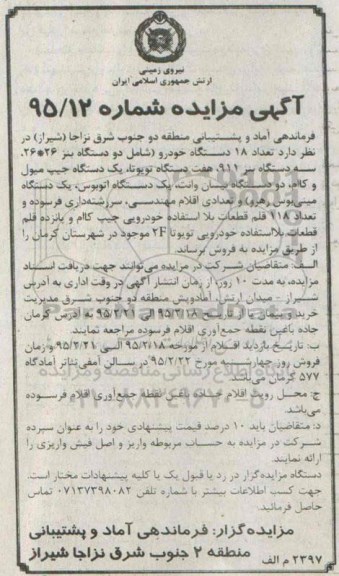 نیروی زمینی
ارتش جمهوری اسلامی ایران
آگهی مزایده شماره ۹۵/۱۲
فرماندهی آماد و پشتیبانی منطقه دو جنوب شرق نزاجا (شیراز) در
نظر دارد تعداد ۱۸ دستگاه خودرو (شامل دو دستگاه بنز ۲۶*۲۶،
سه دستگاه بنز ۹۱۱ هفت دستگاه تویوتا، یک دستگاه جیپ میول
و کاام، دو دستگاه نیسان وانت، یک دستگاه اتوبوس، یک دستگاه
مینی‌بوس رهرو) و تعدادی اقلام مهندسی، سررشته‌داری فرسوده و
تعداد ۱۱۸ قلم قطعات بلا استفاده خودرویی جیپ کاام و پانزده قلم
قطعات بلااستفاده خودرویی تویوتا ۲F موجود در شهرستان کرمان را
از طریق مزایده به فروش برساند.
الف: متقاضیان شرکت در مزایده می‌توانند جهت دریافت اسناد
مزایده، به مدت ۱۰ روز از زمان انتشار آگهی در وقت اداری به آدرس
شیراز - میدان ارتش، آمادوپش منطقه دو جنوب شرق مدیریت
خرید و پیمان و از تاریخ ۹۵/۲/۱۸ الی ۹۵/۲/۲۱ به آدرس کرمان
جاده باغین نقطه جمع‌آوری اقلام فرسوده مراجعه نمایند.
ب: تاریخ بازدید اقلام از مورخه ۹۵/۲/۱۸ الی ۹۵/۲/۲۱ و زمان
فروش روز چهارشنبه مورخ ۹۵/۲/۲۲ در سالن آمفی تئاتر آمادگاه
۵۷۷ کرمان می‌باشد.
ج: محل رویت اقلام جاده باغین نقطه جمع‌آوری اقلام فرسوده
می‌باشد.
د: متقاضیان باید ۱۰ درصد قیمت پیشنهادی خود را به عنوان سپرده
شرکت در مزایده به حساب مربوطه واریز و اصل فیش واریزی را
ارائه نمایند.
دستگاه مزایده‌گزار در رد یا قبول یک یا کلیه پیشنهادات مختار است.
جهت کسب اطلاعات بیشتر با شماره تلفن ۰۷۱۳۷۳۹۸۰۸۲ تماس
حاصل فرمائید.
مزایده‌گزار: فرماندهی آماد و پشتیبانی
منطقه ۲ جنوب شرق نزاجا شیراز
۲۳۹۷ م الف